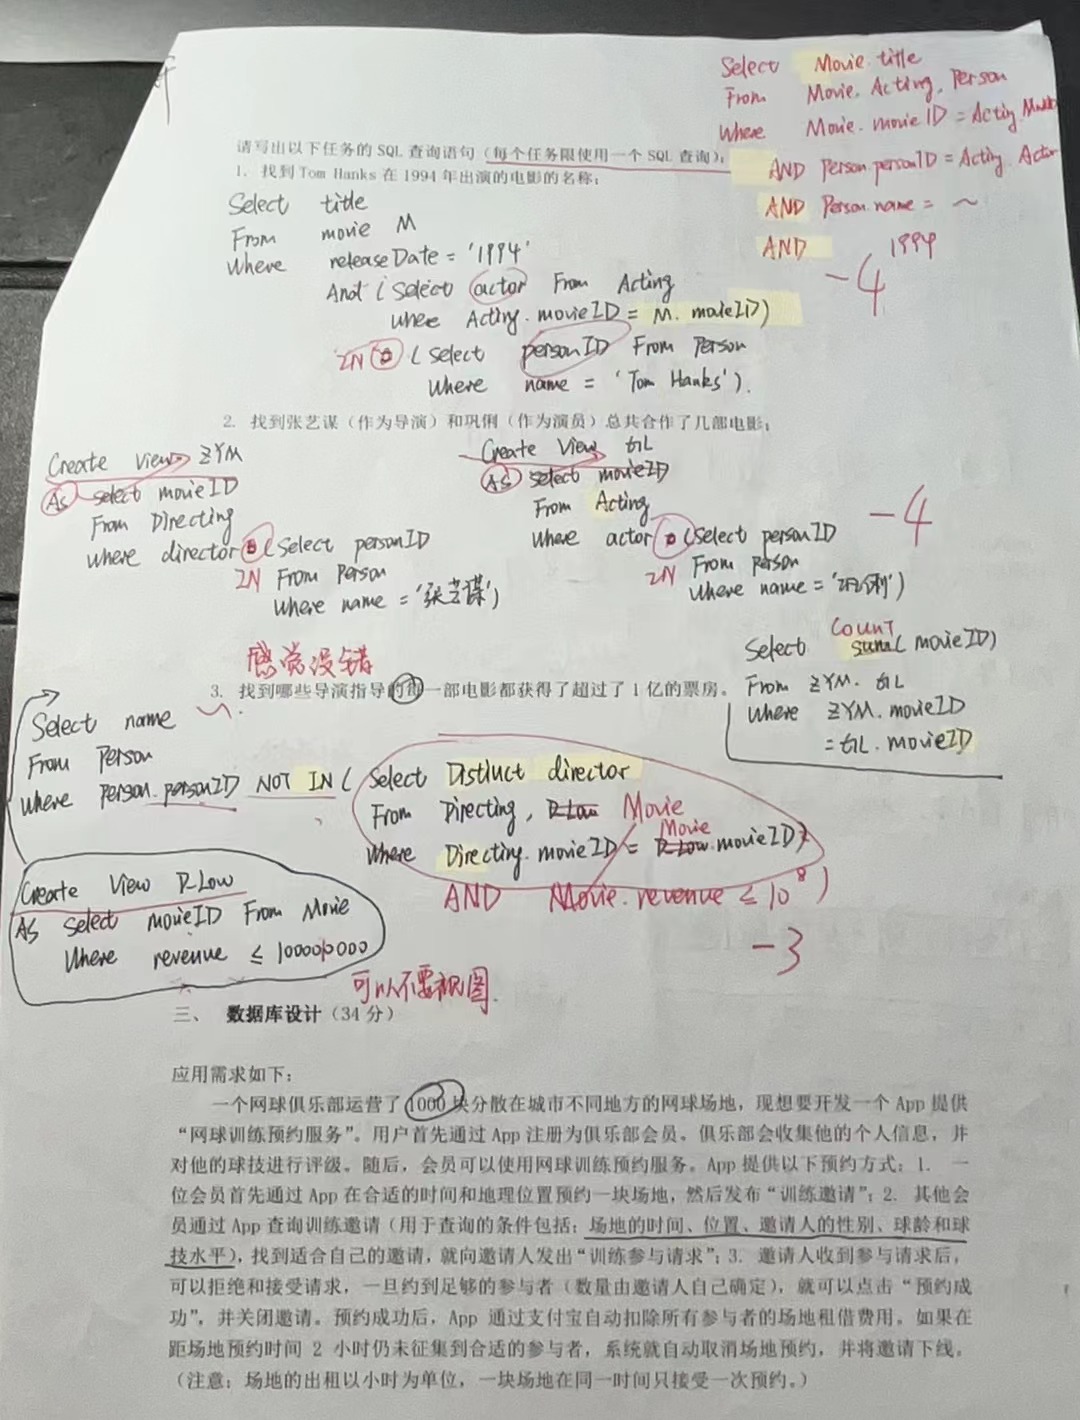 Select Movie.title
From Movie, Acting, Person
Where Movie.movieID = Acting.MovieID
AND Person.personID = Acting.Actor
AND Person.name = ~
AND 1994
-4
请写出以下任务的 SQL 查询语句(每个任务限使用一个 SQL 查询):
1. 找到Tom Hanks 在 1994 年出演的电影的名称;
Select title
From movie M
Where releaseDate = '1994'
And (Select actor From Acting
Where Acting.movieID = M.movieID)
IN (Select personID From Person
Where name = 'Tom Hanks').
2. 找到张艺谋(作为导演)和巩俐(作为演员)总共合作了几部电影;
Create View ZYM
As select movieID
From Directing
Where director (Select personID
IN From Person
Where name = '张艺谋')
Create View GL
As select movieID
From Acting
Where actor (Select personID
IN From Person
Where name = '巩俐')
-4
COUNT
Select sum(movieID)
From ZYM. GL
Where ZYM.movieID
= GL.movieID
感觉没错
3. 找到哪些导演指导的每一部电影都获得了超过了 1 亿的票房。
Select name
From Person
Where Person.personID NOT IN (Select Distinct director
From Directing, D_Low Movie
Where Directing.movieID = D_Low.movieID)
Movie
AND Movie.revenue ≤ 10⁸)
-3
Create View D_Low
As Select movieID From Movie
Where revenue ≤ 100000000
可以不要视图.
三、 数据库设计(34 分)
应用需求如下:
一个网球俱乐部运营了 1000 块分散在城市不同地方的网球场地,现想要开发一个 App 提供
“网球训练预约服务”。用户首先通过 App 注册为俱乐部会员。俱乐部会收集他的个人信息,并
对他的球技进行评级。随后,会员可以使用网球训练预约服务。App 提供以下预约方式:1. 一
位会员首先通过 App 在合适的时间和地理位置预约一块场地,然后发布“训练邀请”;2. 其他会
员通过 App 查询训练邀请(用于查询的条件包括:场地的时间、位置、邀请人的性别、球龄和球
技水平),找到适合自己的邀请,就向邀请人发出“训练参与请求”;3. 邀请人收到参与请求后,
可以拒绝和接受请求,一旦约到足够的参与者(数量由邀请人自己确定),就可以点击“预约成
功”,并关闭邀请。预约成功后,App 通过支付宝自动扣除所有参与者的场地租借费用。如果在
距场地预约时间 2 小时仍未征集到合适的参与者,系统就自动取消场地预约,并将邀请下线。
(注意:场地的出租以小时为单位,一块场地在同一时间只接受一次预约。)